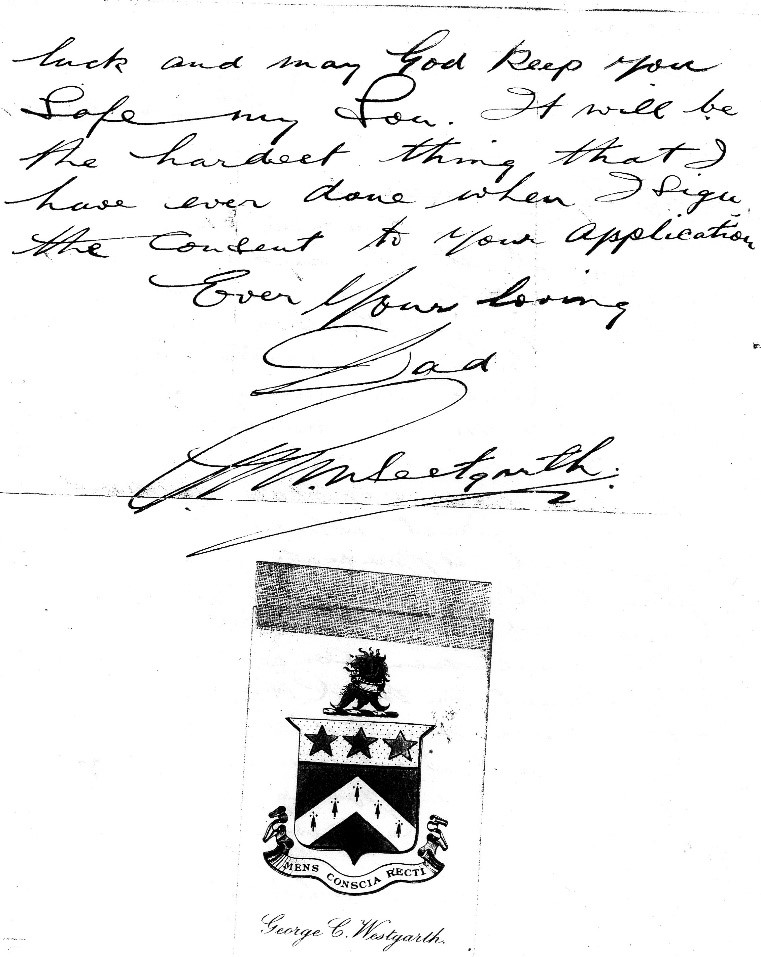 luck and may God keep you
Safe my Son. It will be
the hardest thing that I
have ever done when I Sign
the Consent to your application
Ever Yours loving
Dad
Westgarth.
MENS CONSCIA RECTI
George C. Westgarth.